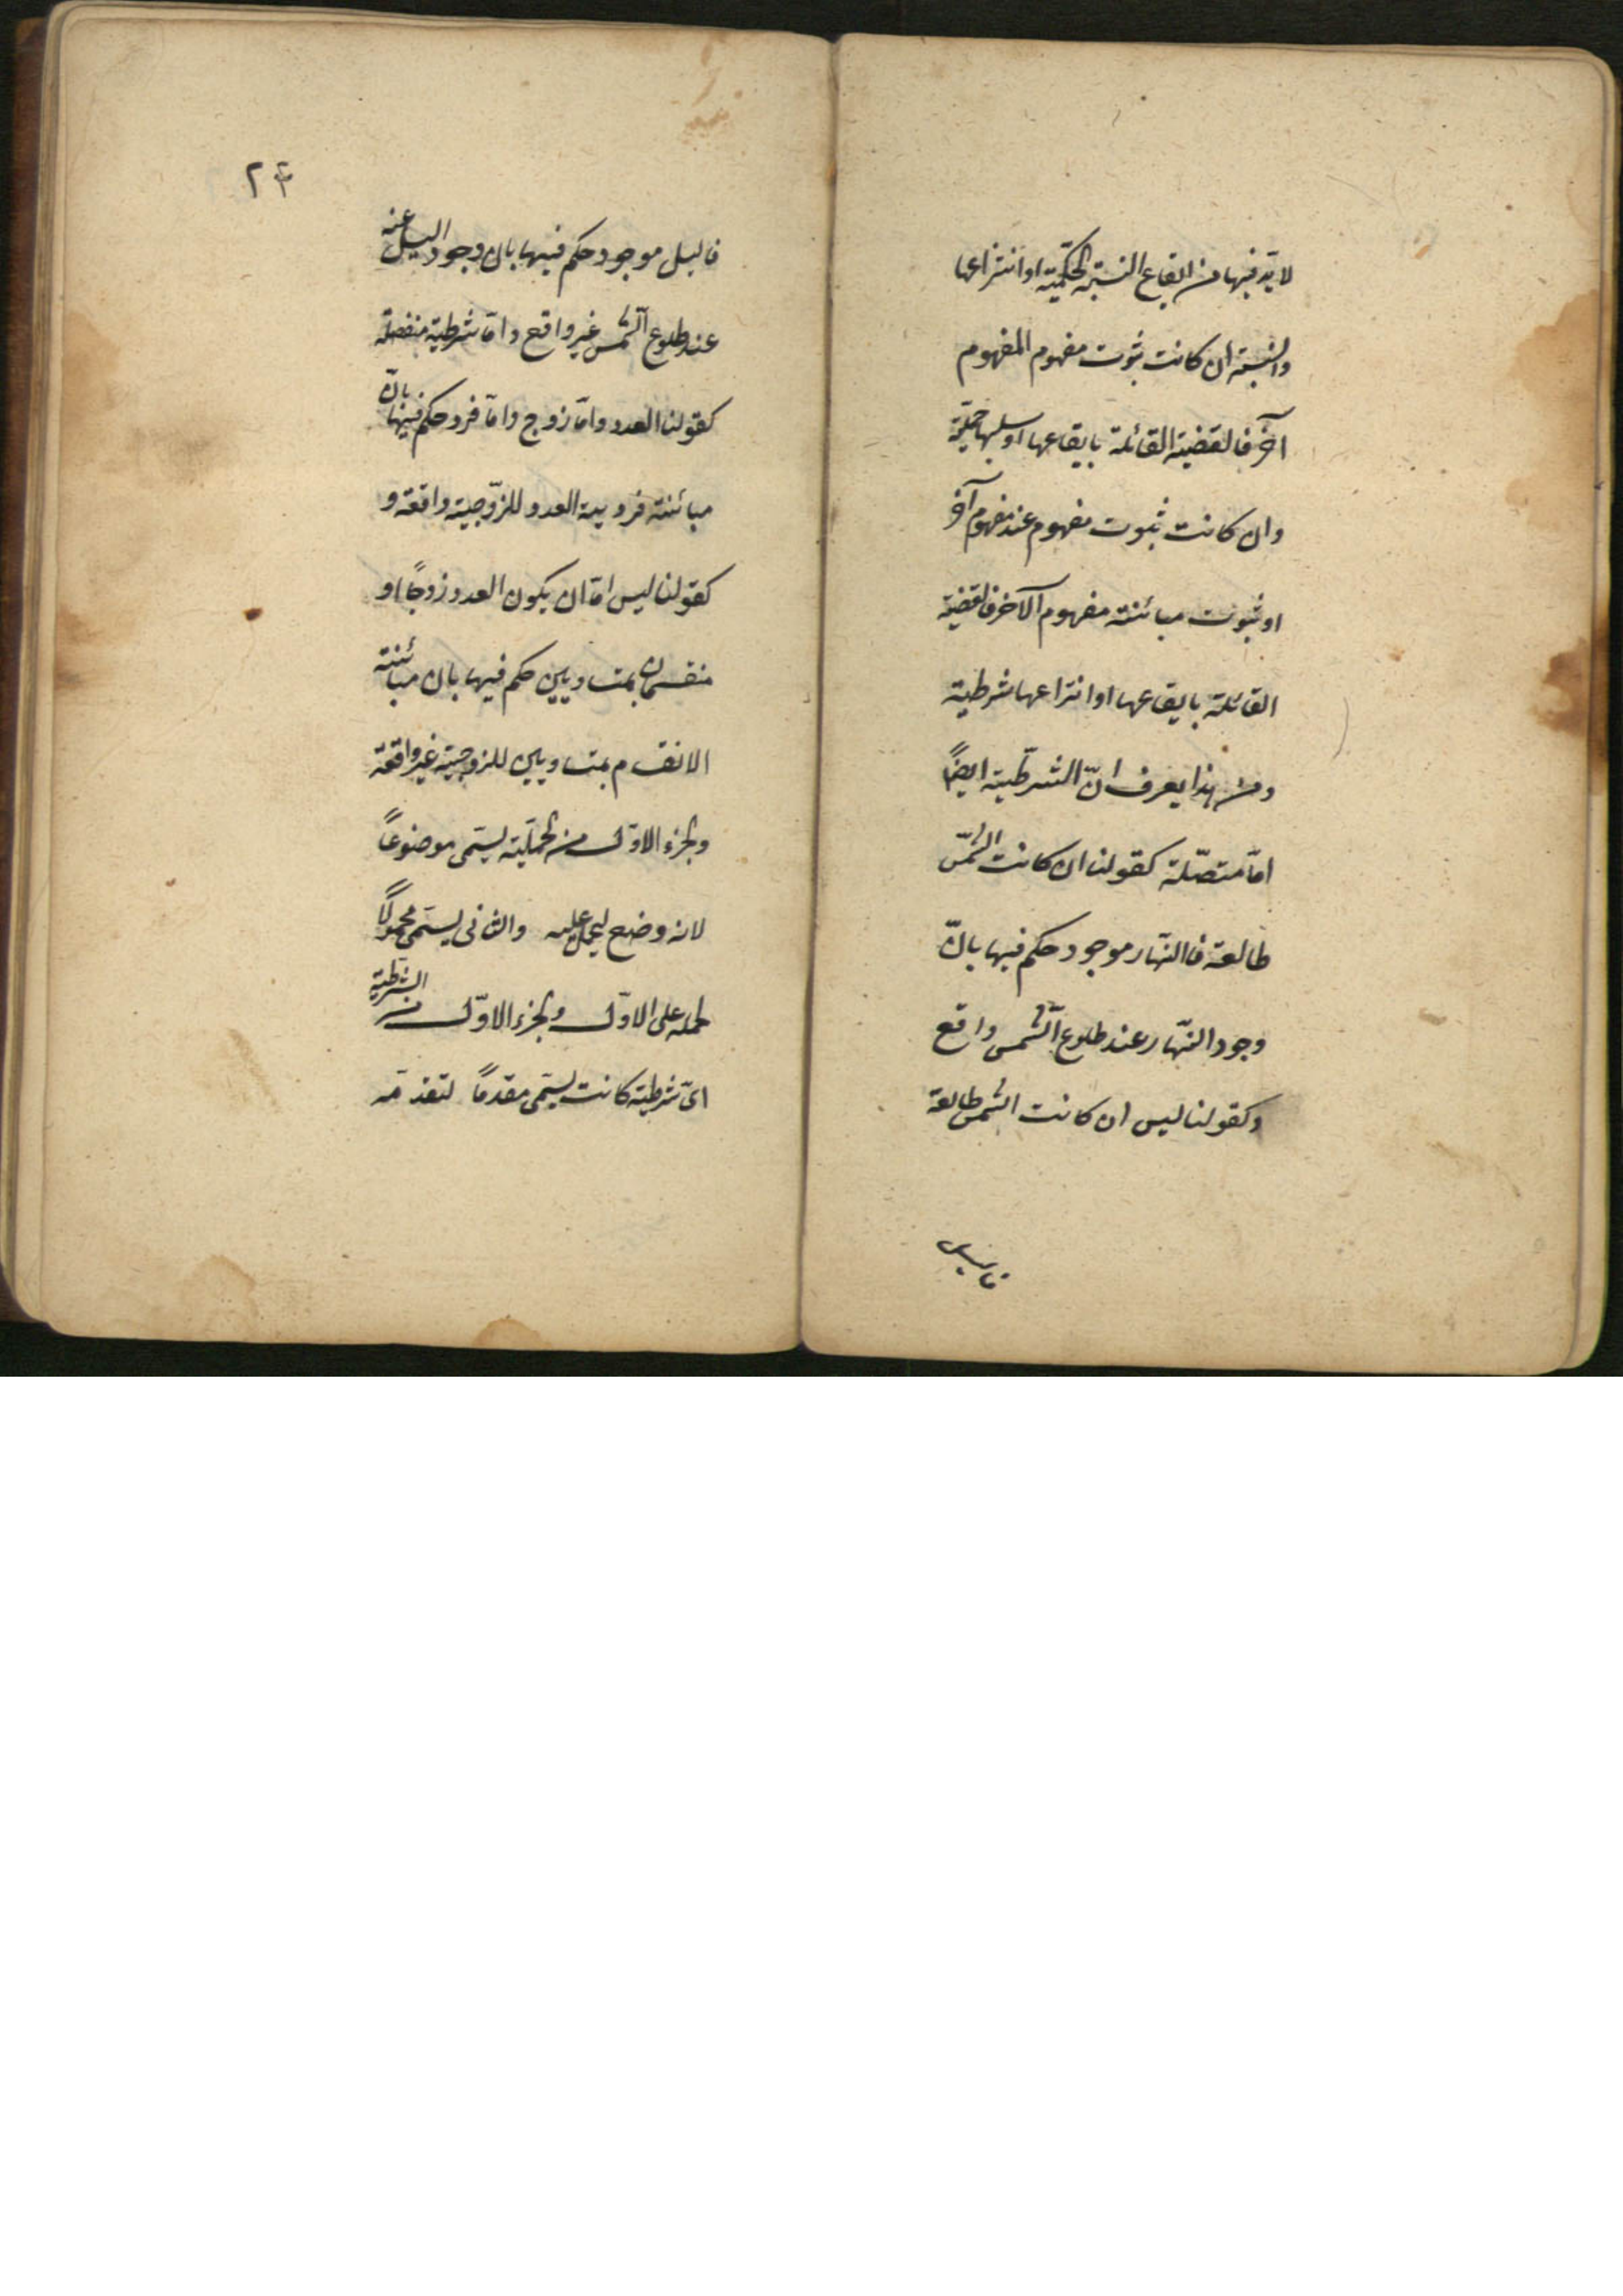 لا بدّ فيها من ايقاع النسبة الحكميّة او انتزاعها
والنسبة ان كانت ثبوت مفهوم المفهوم
آخر فالقضية القائلة بايقاعها او سلبها حمليّة
وان كانت ثبوت مفهوم عند مفهوم آخر
او ثبوت مبائنة مفهوم الآخر فالقضية
القائلة بايقاعها او انتزاعها شرطية
ومن هذا يعرف انّ الشرطيّة ايضاً
امّا متصّلة كقولنا ان كانت الشّمس
طالعة فالنّهار موجود حكم فيها بانّ
وجود النّهار عند طلوع الشّمس واقع
وكقولنا ليس ان كانت الشمس طالعة
فالليل
٢٤
فاليل موجود حكم فيها بان وجود اليل عنه
عند طلوع الشّمس غير واقع وامّا شرطية منفصلة
كقولنا العدد وامّا زوج وامّا فرد حكم فيها بانّ
مبائنة فردية العدد للزّوجية واقعة و
كقولنا ليس امّا ان يكون العدد زوجًا او
منقسمان بمتساويين حكم فيها بان مبائنة
الانقسام بمتساويين للزوجية غير واقعة
والجزء الاوّل من الحمليّة يسمّى موضوعاً
لانه وضع ليحمل عليه والثانى يسمّى محمولًا
لحمله على الاوّل والجزء الاوّل من الشرطيّة
اىّ شرطية كانت يسمّى مقدماً لتقدمه